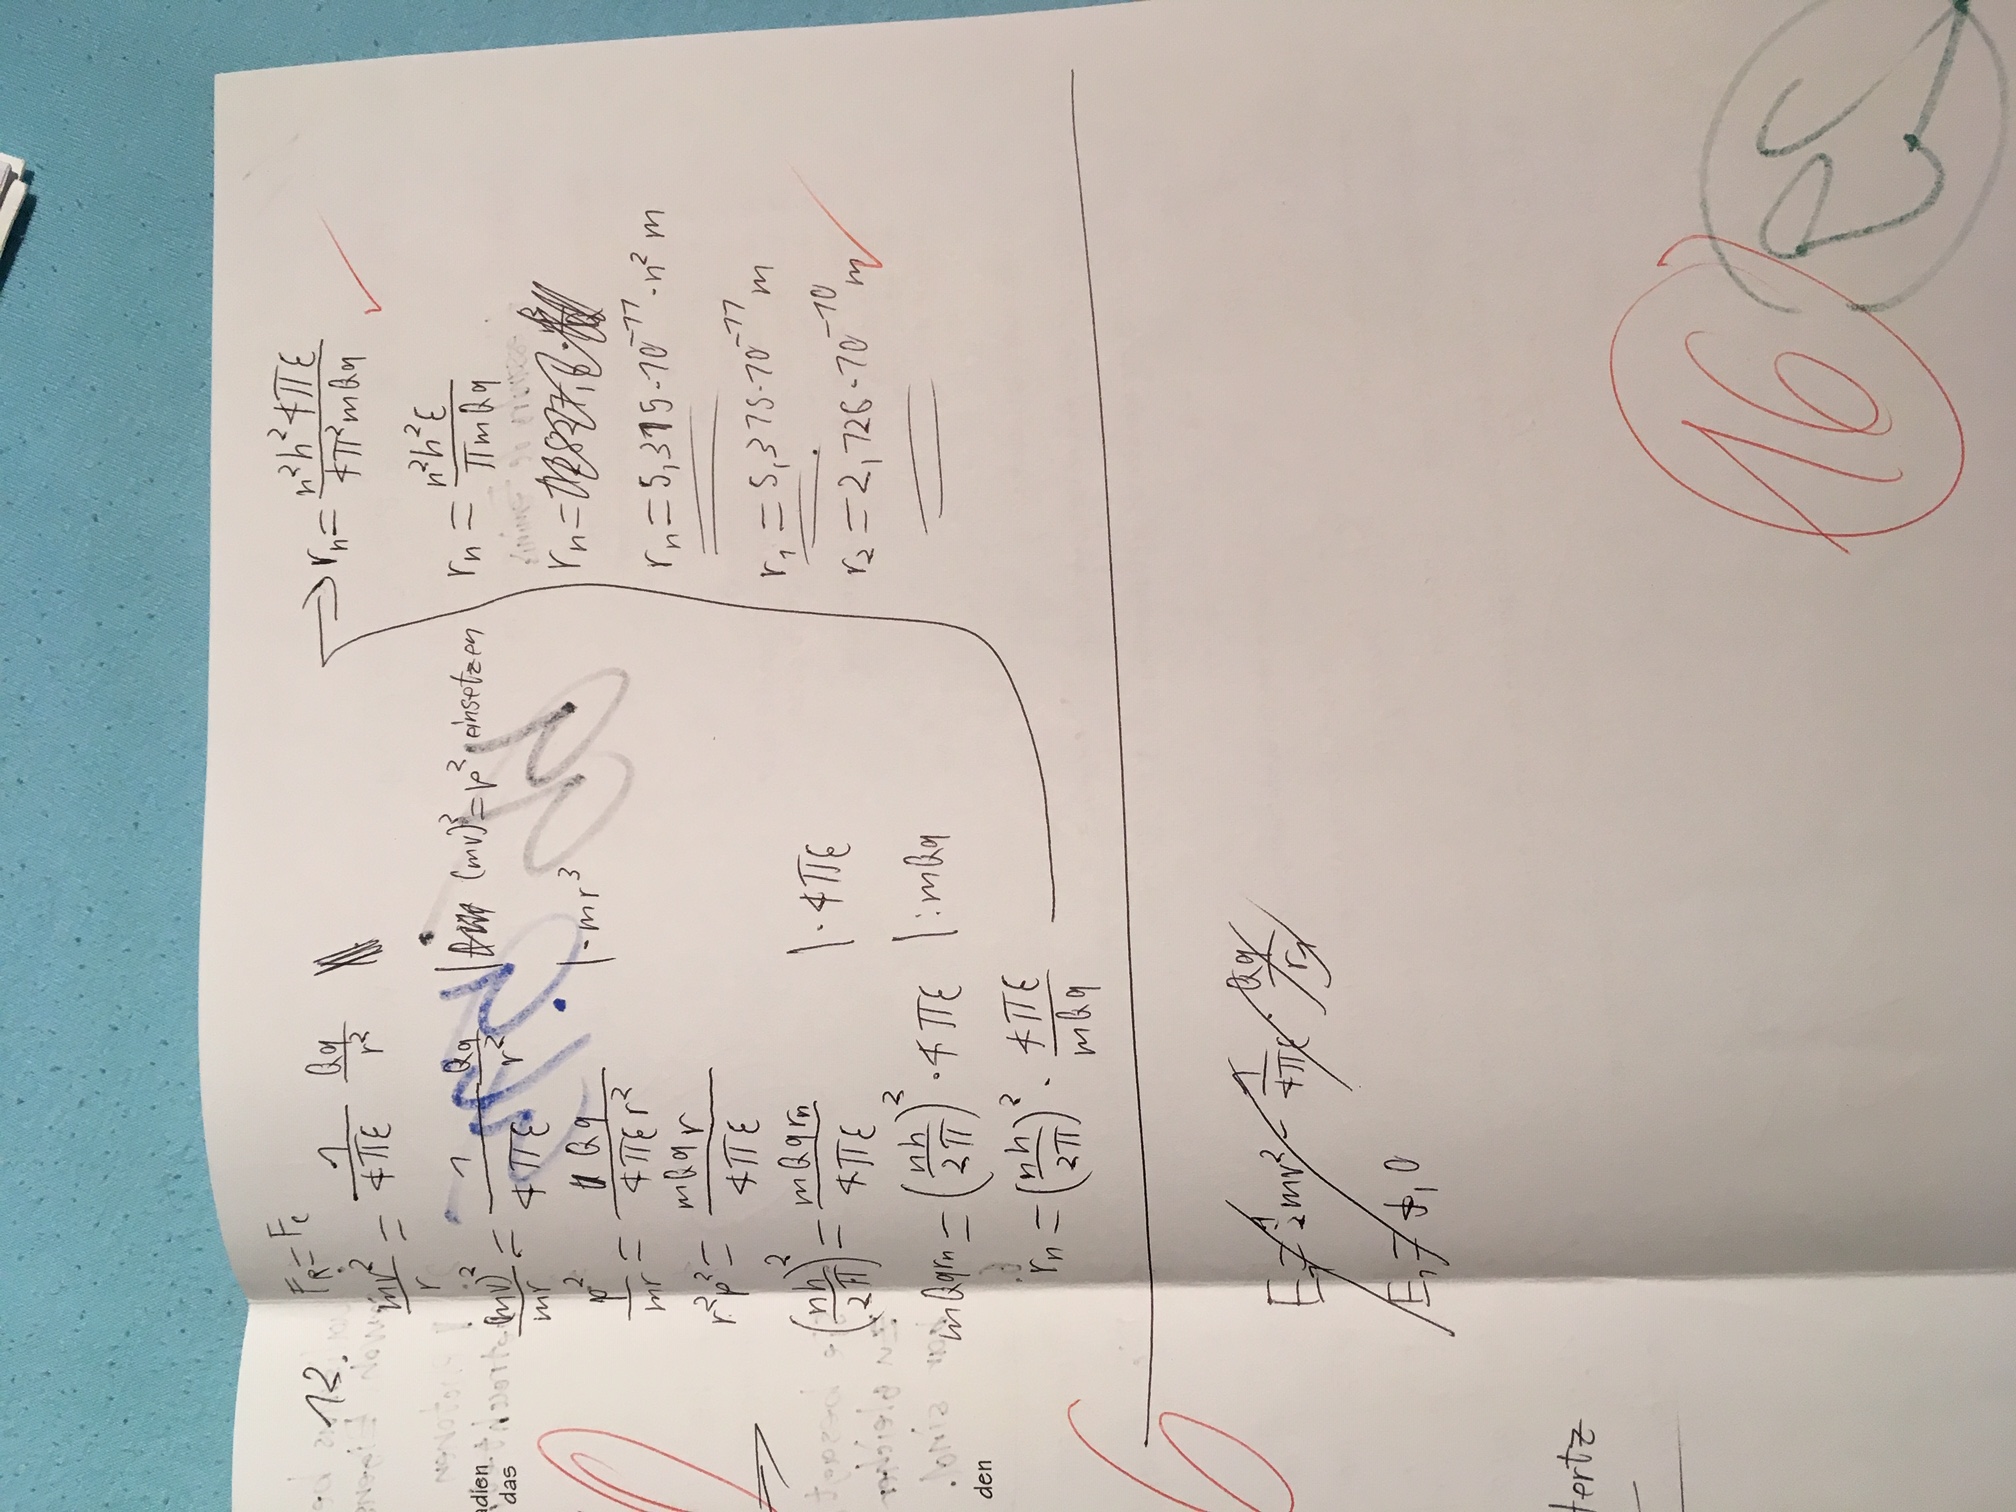 12.
F_R = F_C
mv²/r = 1/4πε Qq/r²
(mv)²/mr = 1/4πε Qq/r² | (mv)² = p² einsetzen
p²/mr = Qq/4πεr² | · mr³
r²p² = mQqr/4πε
(nh/2π)² = mQqrₙ/4πε | · 4πε
mQqrₙ = (nh/2π)² · 4πε | : mQq
rₙ = (nh/2π)² · 4πε/mQq
→ rₙ = n²h²4πε/4π²mQq
rₙ = n²h²ε/πmQq
rₙ =
rₙ = 5,315 · 10⁻¹¹ · n² m
r₁ = 5,315 · 10⁻¹¹ m
r₂ = 2,126 · 10⁻¹⁰ m
E₁ = ½mv² - 1/4πε · Qq/r₁
adien
das
den
Hertz
16